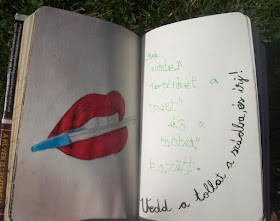 minden
történhet a
"most"
és a
"soha"
között.
Vedd a tollat a szádba, és írj!